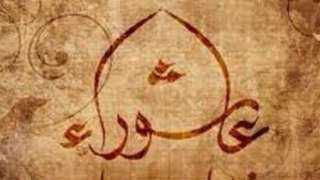 عاشوراء